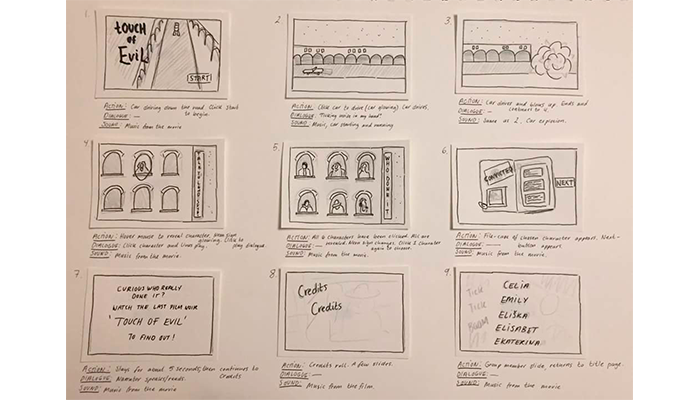 1.
TOUCH
OF
EVIL
START
ACTION: Car driving down the road. Click Start
to begin.
DIALOGUE: —
SOUND: Music from the movie
2.
ACTION: Click car to drive (car glowing). Car drives.
DIALOGUE: "Ticking noise in my head"
SOUND: Music, car starting and running
3.
ACTION: Car drives and blows up. Ends and
continues to 4.
DIALOGUE: —
SOUND: Same as 2. Car explosion.
4.
ACTION: Hover mouse to reveal character, then
glowing. Click to
DIALOGUE: Click character and lines play. play dialogue
SOUND: Music from the movie.
5.
WHO DUNN IT
ACTION: All 6 characters have been clicked. All are
revealed. Neon sign changes. Click 1 character
again to choose.
DIALOGUE: —
SOUND: Music from the movie.
6.
CONVICTED
NEXT
ACTION: File-case of chosen character appears. Next-
button appears
DIALOGUE: —
SOUND: Music from the movie.
7.
CURIOUS WHO REALLY
DONE IT?
WATCH THE LAST FILM NOIR
'TOUCH OF EVIL'
TO FIND OUT!
ACTION: Stays for about 5 seconds, then continues to
credits
DIALOGUE: Narrator speaks/reads.
SOUND: Music from the movie
8.
Credits
Credits
ACTION: Credits roll. A few slides.
DIALOGUE: —
SOUND: Music from the film.
9.
TICK
TICK
BOOM
CELIA
EMILY
ELIŠKA
ELISABET
EKATERINA
ACTION: Group member slide, returns to title page.
DIALOGUE: —
SOUND: Music from the movie.